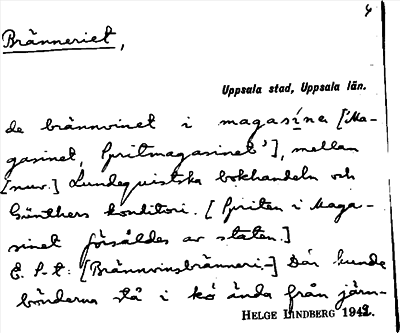 4
Bränneriet,
Uppsala stad, Uppsala län.
de brännvinet i magasínet ['Ma-
gasinet, Spritmagasinet'], mellan
[nuv.] Lundequistska bokhandeln och
Günthers konditori. [Spriten i Maga-
sinet försåldes av staten.]
E. S-t: [Brännvinsbränneri.-] Där kunde
bönderna stå i kö ända från järn-
HELGE LINDBERG 1942.